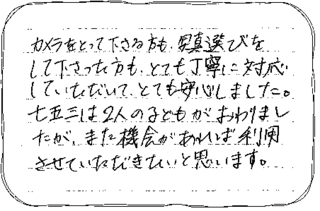 カメラをとって下さる方も、写真選びを
して下さった方も、とても丁寧に対応
していただいて、とても安心しました。
七五三は2人の子どもがおわりまし
たが、また機会があれば利用
させていただきたいと思います。